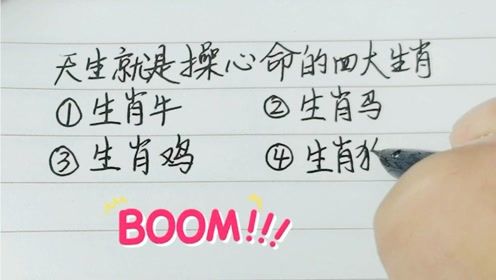 天生就是操心命的四大生肖
①生肖牛 ②生肖马
③生肖鸡 ④生肖狗
BOOM!!!